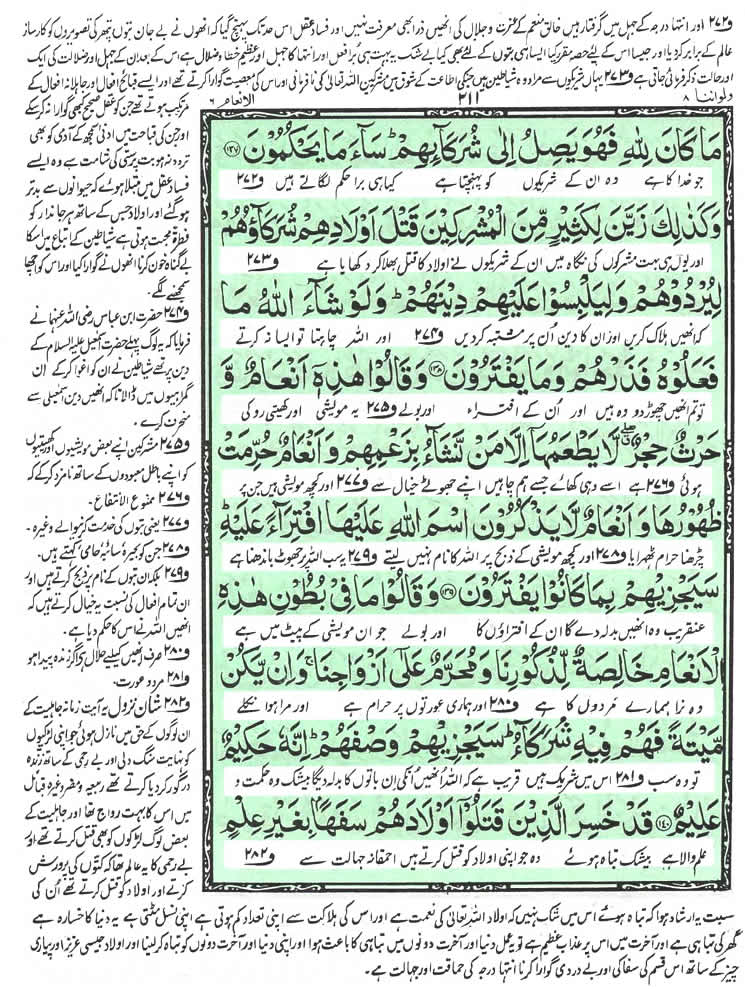 و۲۷۲ اور انتہا درجہ کے جہل میں گرفتار ہیں خالق منعم کے عزت و جلال کی انھیں ذرا بھی معرفت نہیں اور فساد عقل اس حد تک پہنچ گیا کہ انھوں نے بے جان بتوں پتھر کی تصویروں کو کارساز
عالم کے برابر کردیا اور جیسا اس کے لئے حصہ مقرر کیا ایسا ہی بتوں کے لئے بھی کیا بے شک یہ بہت ہی بُرا فعل اور انتہا کا جہل اور عظیم خطا و ضلال ہے اس کے بعد ان کے جہل اور ضلالت کی ایک
اور حالت ذکر فرمائی جاتی ہے و۲۷۳ یہاں شریکوں سے مراد وہ شیاطین ہیں جنکی اطاعت کے شوق میں مشرکین اللہ تعالیٰ کی نافرمانی اور اس کی معصیت گوارا کرتے تھے اور ایسے قبائح افعال اور جاہلانہ افعال کے
ولواننا ۸
۲۱۱
الانعام ۶
مرتکب ہوتے تھے جن کو عقل صحیح کبھی گوارا نہ کرسکے
اور جن کی قباحت میں ادنیٰ سمجھ کے آدمی کو بھی
تردد نہ ہو بت پرستی کی شامت سے وہ ایسے
فساد عقل میں مبتلا ہوئے کہ حیوانوں سے بدتر
ہوگئے اور اولاد جس کے ساتھ ہر جاندار کو
فطرۃً محبت ہوتی ہے شیاطین کے اتباع میں اسکا
بے گناہ خون کرنا انھوں نے گوارا کیا اور اس کو اچھا
سمجھنے لگے۔
و۲۷۴ حضرت ابن عباس رضی اللہ عنہما نے
فرمایا کہ یہ لوگ پہلے حضرت اسمٰعیل علیہ السلام کے
دین پر تھے شیاطین نے ان کو اغوا کرکے ان
گمراہیوں میں ڈالا تاکہ انھیں دین اسمٰعیلی سے
منحرف کرے۔
و۲۷۵ مشرکین اپنے بعض مویشیوں اور کھیتیوں
کو اپنے باطل معبودوں کے ساتھ نامزد کرکے کہ
و۲۷۶ ممنوع الانتفاع۔
و۲۷۷ یعنی بتوں کی خدمت کرنے والے وغیرہ۔
و۲۷۸ جن کو بحیرہ سائبہ حامی کہتے ہیں۔
و۲۷۹ بلکہ ان بتوں کے نام پر ذبح کرتے ہیں اور
ان تمام افعال کی نسبت یہ خیال کرتے ہیں کہ
انھیں اللہ نے اس کا حکم دیا ہے۔
و۲۸۰ صرف انھیں کیلئے حلال ہے اگر زندہ پیدا ہو
و۲۸۱ مرد و عورت۔
و۲۸۲ شان نزول یہ آیت زمانہ جاہلیت کے
ان لوگوں کے حق میں نازل ہوئی جو اپنی لڑکیوں
کو نہایت سنگ دلی اور بے رحمی کے ساتھ زندہ
درگور کردیا کرتے تھے ربیعہ و مضر وغیرہ قبائل
میں اس کا بہت رواج تھا اور جاہلیت کے
بعض لوگ لڑکوں کو بھی قتل کرتے تھے اور
بے رحمی کا یہ عالم تھا کہ کتوں کی پرورش
کرتے اور اولاد کو قتل کرتے تھے اُن کی
مَا كَانَ لِلّٰهِ فَهُوَ يَصِلُ اِلٰى شُرَكَآئِهِمْ ؕ سَآءَ مَا يَحْكُمُوْنَ ﴿۱۳۶﴾
جو خدا کا ہے وہ ان کے شریکوں کو پہنچتا ہے کیا ہی برا حکم لگاتے ہیں و۲۷۲
وَكَذٰلِكَ زَيَّنَ لِكَثِيْرٍ مِّنَ الْمُشْرِكِيْنَ قَتْلَ اَوْلَادِهِمْ شُرَكَآؤُهُمْ
اور یوں ہی بہت مشرکوں کی نگاہ میں ان کے شریکوں نے اولاد کا قتل بھلا کر دکھایا ہے و۲۷۳
لِيُرْدُوْهُمْ وَلِيَلْبِسُوْا عَلَيْهِمْ دِيْنَهُمْ ؕ وَلَوْ شَآءَ اللّٰهُ مَا
کہ انھیں ہلاک کریں اور ان کا دین اُن پر مشتبہ کردیں و۲۷۴ اور اللہ چاہتا تو ایسا نہ کرتے
فَعَلُوْهُ فَذَرْهُمْ وَمَا يَفْتَرُوْنَ ﴿۱۳۷﴾ وَقَالُوْا هٰذِهٖٓ اَنْعَامٌ وَّ
تو تم انھیں چھوڑ دو وہ ہیں اور اُن کے افتراء اور بولے و۲۷۵ یہ مویشی اور کھیتی روکی
حَرْثٌ حِجْرٌ ۖ لَّا يَطْعَمُهَآ اِلَّا مَنْ نَّشَآءُ بِزَعْمِهِمْ وَاَنْعَامٌ حُرِّمَتْ
ہوئی و۲۷۶ ہے اسے وہی کھائے جسے ہم چاہیں اپنے جھوٹے خیال سے و۲۷۷ اور کچھ مویشی ہیں جن پر
ظُهُوْرُهَا وَاَنْعَامٌ لَّا يَذْكُرُوْنَ اسْمَ اللّٰهِ عَلَيْهَا افْتِرَآءً عَلَيْهِ ؕ
چڑھنا حرام ٹھہرایا و۲۷۸ اور کچھ مویشی کے ذبح پر اللہ کا نام نہیں لیتے و۲۷۹ یہ سب اللہ پر جھوٹ باندھنا ہے
سَيَجْزِيْهِمْ بِمَا كَانُوْا يَفْتَرُوْنَ ﴿۱۳۸﴾ وَقَالُوْا مَا فِيْ بُطُوْنِ هٰذِهِ
عنقریب وہ انھیں بدلہ دے گا ان کے افتراؤں کا اور بولے جو ان مویشی کے پیٹ میں ہے
الْاَنْعَامِ خَالِصَةٌ لِّذُكُوْرِنَا وَمُحَرَّمٌ عَلٰٓى اَزْوَاجِنَا ۚ وَاِنْ يَّكُنْ
وہ نرا ہمارے مردوں کا ہے و۲۸۰ اور ہماری عورتوں پر حرام ہے اور مرا ہوا نکلے
مَّيْتَةً فَهُمْ فِيْهِ شُرَكَآءُ ؕ سَيَجْزِيْهِمْ وَصْفَهُمْ ؕ اِنَّهٗ حَكِيْمٌ
تو وہ سب و۲۸۱ اس میں شریک ہیں قریب ہے کہ اللہ انھیں اُنکی اِن باتوں کا بدلہ دیگا بیشک وہ حکمت و
عَلِيْمٌ ﴿۱۴۰﴾ قَدْ خَسِرَ الَّذِيْنَ قَتَلُوْٓا اَوْلَادَهُمْ سَفَهًۢا بِغَيْرِ عِلْمٍ
علم والا ہے بیشک تباہ ہوئے وہ جو اپنی اولاد کو قتل کرتے ہیں احمقانہ جہالت سے و۲۸۲
نسبت یہ ارشاد ہوا کہ تباہ ہوئے اس میں شک نہیں کہ اولاد اللہ تعالیٰ کی نعمت ہے اور اس کی ہلاکت سے اپنی تعداد کم ہوتی ہے اپنی نسل مٹتی ہے یہ دنیا کا خسارہ ہے
گھر کی تباہی ہے اور آخرت میں اس پر عذاب عظیم ہے تو یہ عمل دنیا اور آخرت دونوں میں تباہی کا باعث ہوا اور اپنی دنیا اور آخرت دونوں کو تباہ کرلینا اور اولاد جیسی عزیز اور پیاری
چیز کے ساتھ اس قسم کی سفاکی اور بے دردی گوارا کرنا انتہا درجہ کی حماقت اور جہالت ہے۔